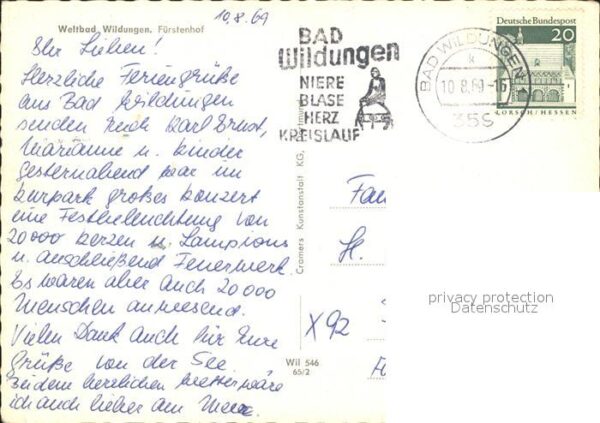 10.8.69
Weltbad Wildungen. Fürstenhof
Ihr Lieben!
Herzliche Feriengrüße
aus Bad Wildungen
senden Euch Karl Ernst,
Marianne u. Kinder
Gesternabend war im
Kurpark großes Konzert
eine Festbeleuchtung von
20000 Kerzen u. Lampions
u. anschließend Feuerwerk.
Es waren aber auch 20000
Menschen anwesend.
Vielen Dank auch für Eure
Grüße von der See.
Bei dem herrlichen Wetter wäre
ich auch lieber am Meer.
BAD
Wildungen
NIERE
BLASE
HERZ
KREISLAUF
BAD WILDUNGEN
k
10.8.69-16
355
Deutsche Bundespost
20
LORSCH/HESSEN
Cramers Kunstanstalt KG,
Wil 546
65/2
Fam
X 92
privacy protection
Datenschutz